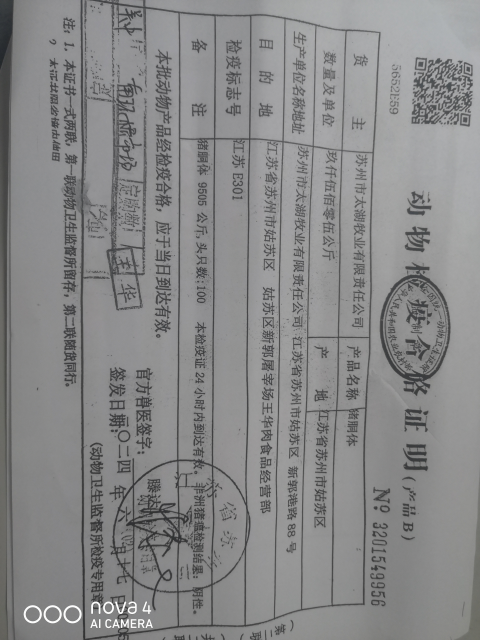 动物检疫合格证明(产品B)
5652E59
№ 3201549956
货主 苏州市太湖牧业有限责任公司 产品名称 猪胴体
数量及单位 玖仟伍佰零伍公斤 产地 江苏省苏州市姑苏区
生产单位名称地址 苏州市太湖牧业有限责任公司 江苏省苏州市姑苏区 新郭港路 88 号
目的地 江苏省苏州市姑苏区 姑苏区新郭屠宰场王华肉食品经营部
检疫标志号 江苏 E301
备注 猪胴体 9505 公斤,头只数:100 本检疫证24小时内到达有效。非洲猪瘟检测结果:阴性。
本批动物产品经检疫合格,应于当日到达有效。
官方兽医签字:
签发日期:二〇二四年六月十七日
(动物卫生监督所检疫专用章)
王华
注:1. 本证书一式两联,第一联动物卫生监督所留存,第二联随货同行。
nova 4
AI CAMERA